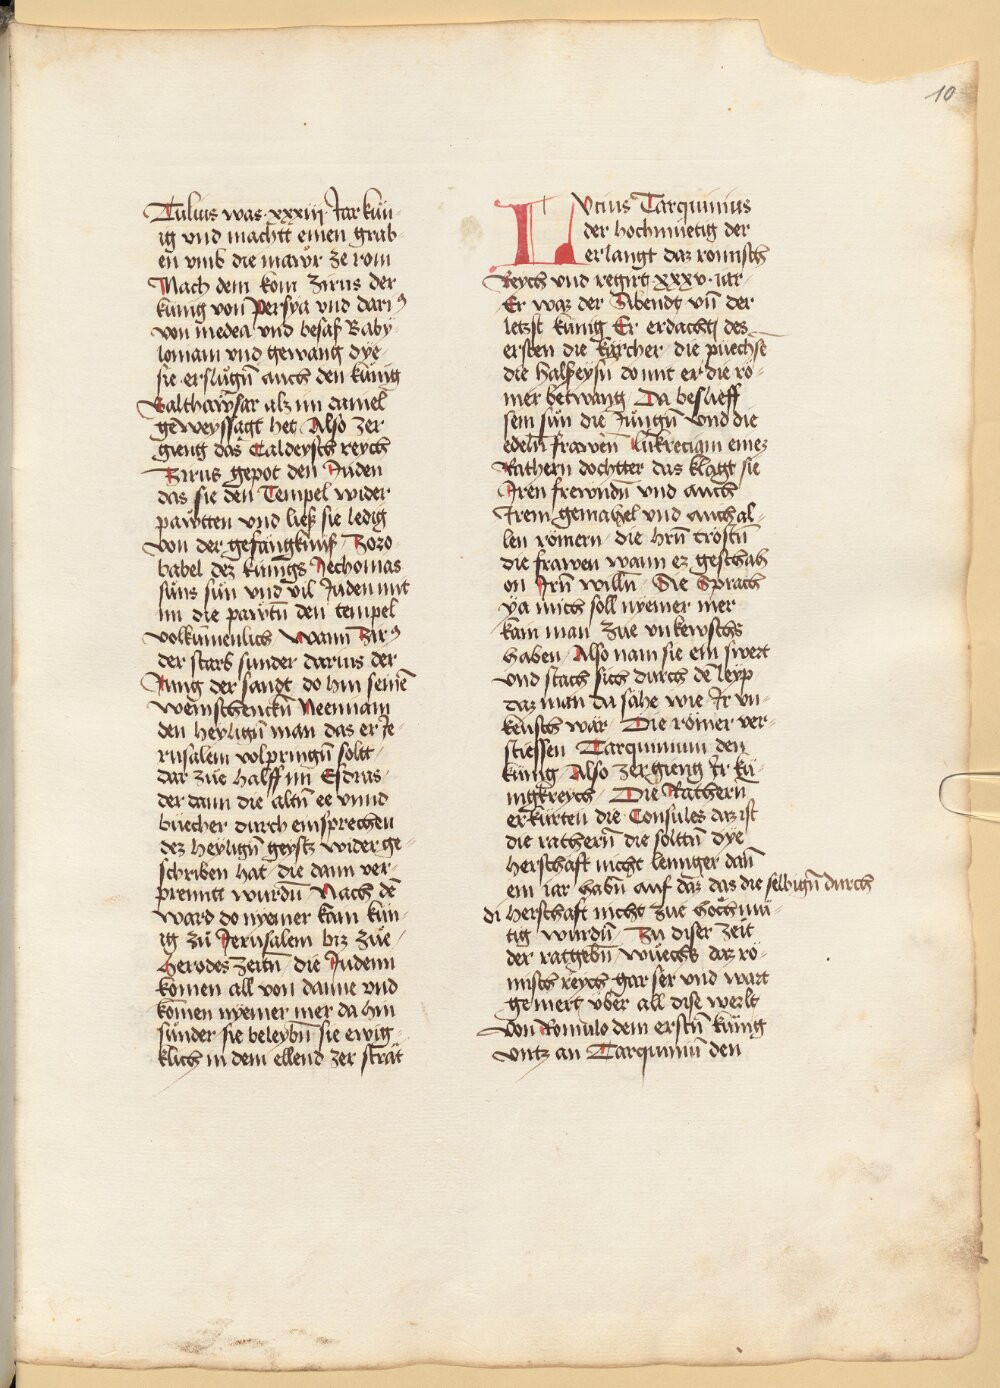 10
Tulius was · xxxiiij Jar kün-
ig vnd machtt einen grab
en vmb die mawr ze rom
Nach dem kom Zirus der
künig von Persya vnd dariꝰ
von medea vnd besaß Baby-
loniam vnd gewang dye
sie erslůgn̄ auch den künig
Balthawsar alz im daniel
geweyssagt het Also zer
gieng das Caldeysch reych
Zirus gepot den Juden
das sie den Tempel wider
pawtten vnd ließ sie ledig
von der gefängknuß Zoro
babel dez künigs Jechonias
süns sün vnd vil Juden mit
im die pawtn̄ den tempel
volkümenlich Wann Zirꝰ
der starb sunder darius der
Jung der sandt do hin seinē
weinschenckn̄ Neemiam
den heylign̄ man das er Je-
rusalem volpringn̄ soltt
dar züe halff im Esdras
der dann die altn̄ ee vnnd
büecher durch einsprechen
dez heylign̄ geystz wider ge-
schriben hat die dann ver-
prenntt wurdn̄ Nach dē
ward do nyemer kain kün-
ig zů Jerusalem biz züe
Herodes zeitn̄ die Judenn
komen all von danne vnd
komen nyemer mer da hin
sünder sie beleybn̄ sie ewig-
klich in dem ellend zer strät
LVcius Tarquinius
der hochmüetig der
erlangt daz romisch
Reych vnd regirt · xxxv · iar
Er waz der Sibendt vn̄ der
letzst künig Er erdacht des
ersten die kärcher die püechsē
die halseysn̄ do mit er die rö-
mer betwang Da beslieff
sein sün die Jungn̄ vnd die
edeln̄ frawen̄ lukreciam einez
Rathern dochtter das klagt sie
Jren frewndn̄ vnd auch
Jrem gemahel vnd auch al-
len römern die hrn̄ tröstn̄
die frawen wann ez geschah
on Jrn̄ willn̄ Die Sprach
ya mich soll nyemer mer
kain man züe vnkewschs
haben Also nam sie ein swert
vnd stach sich durch dē leyp
daz man da sähe wie Jr vn-
keusch wär Die römer ver-
stiessen Tarquinium den
künig Also zergieng Jr kü-
nigkreych Die Rathern
erkürten die Consules daz ist
die rathern̄ die solttn̄ dye
herschaft nicht lennger dan̄
ein iar habn̄ auf daz das die selbign̄ durch
di herschaft nicht züe hochmü-
tig wurdn̄ Zu diser zeit
der ratgebn̄ wüechs daz rö-
misch reych gar ser vnd wart
gemert vber all dise werlt
von Romulo dem erstn̄ künig
vntz an Tarquiniū den